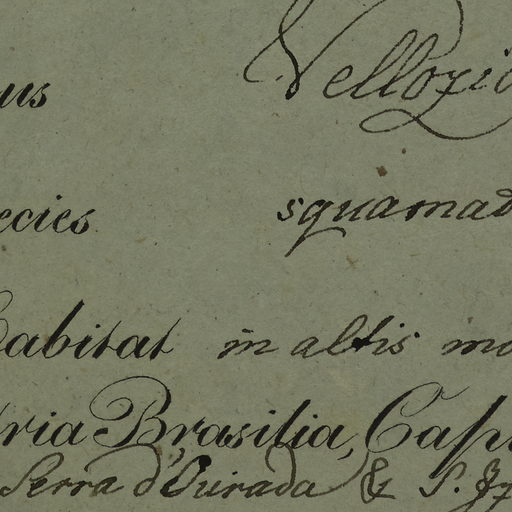 us Vellozi
ecies squamad
Habitat in altis mo
tria Brasilia, Cap
Serra d'Ourada & S.